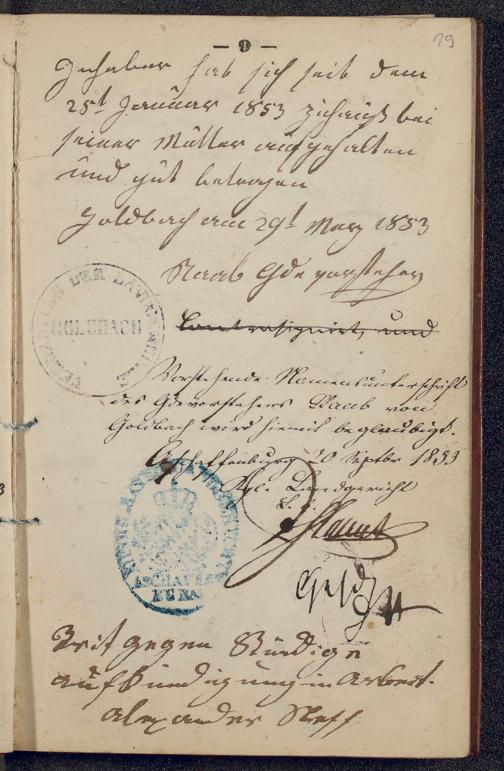 — 9 —
19
Inhaber hat sich seit dem
25t Januar 1853 zuhauß bei
seiner Mutter aufgehalten
und gut betragen
Goldbach am 29t März 1853
Raab Gdevorsteher
Contrasignirt, und
Vorstehende Namensunterschrift
des Gdevorstehers Raab von
Goldbach wird hiemit beglaubigt.
Aschaffenburg 20 Septbr 1853
Kgl. Landgericht
GOLDBACH
ASCHAFFENBURG
gegen
aufkündigung in Arbeit.
Alexander